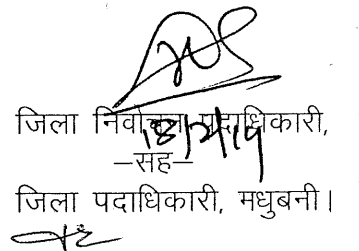 जिला निर्वाचन पदाधिकारी,
18/2/19
–सह–
जिला पदाधिकारी, मधुबनी।